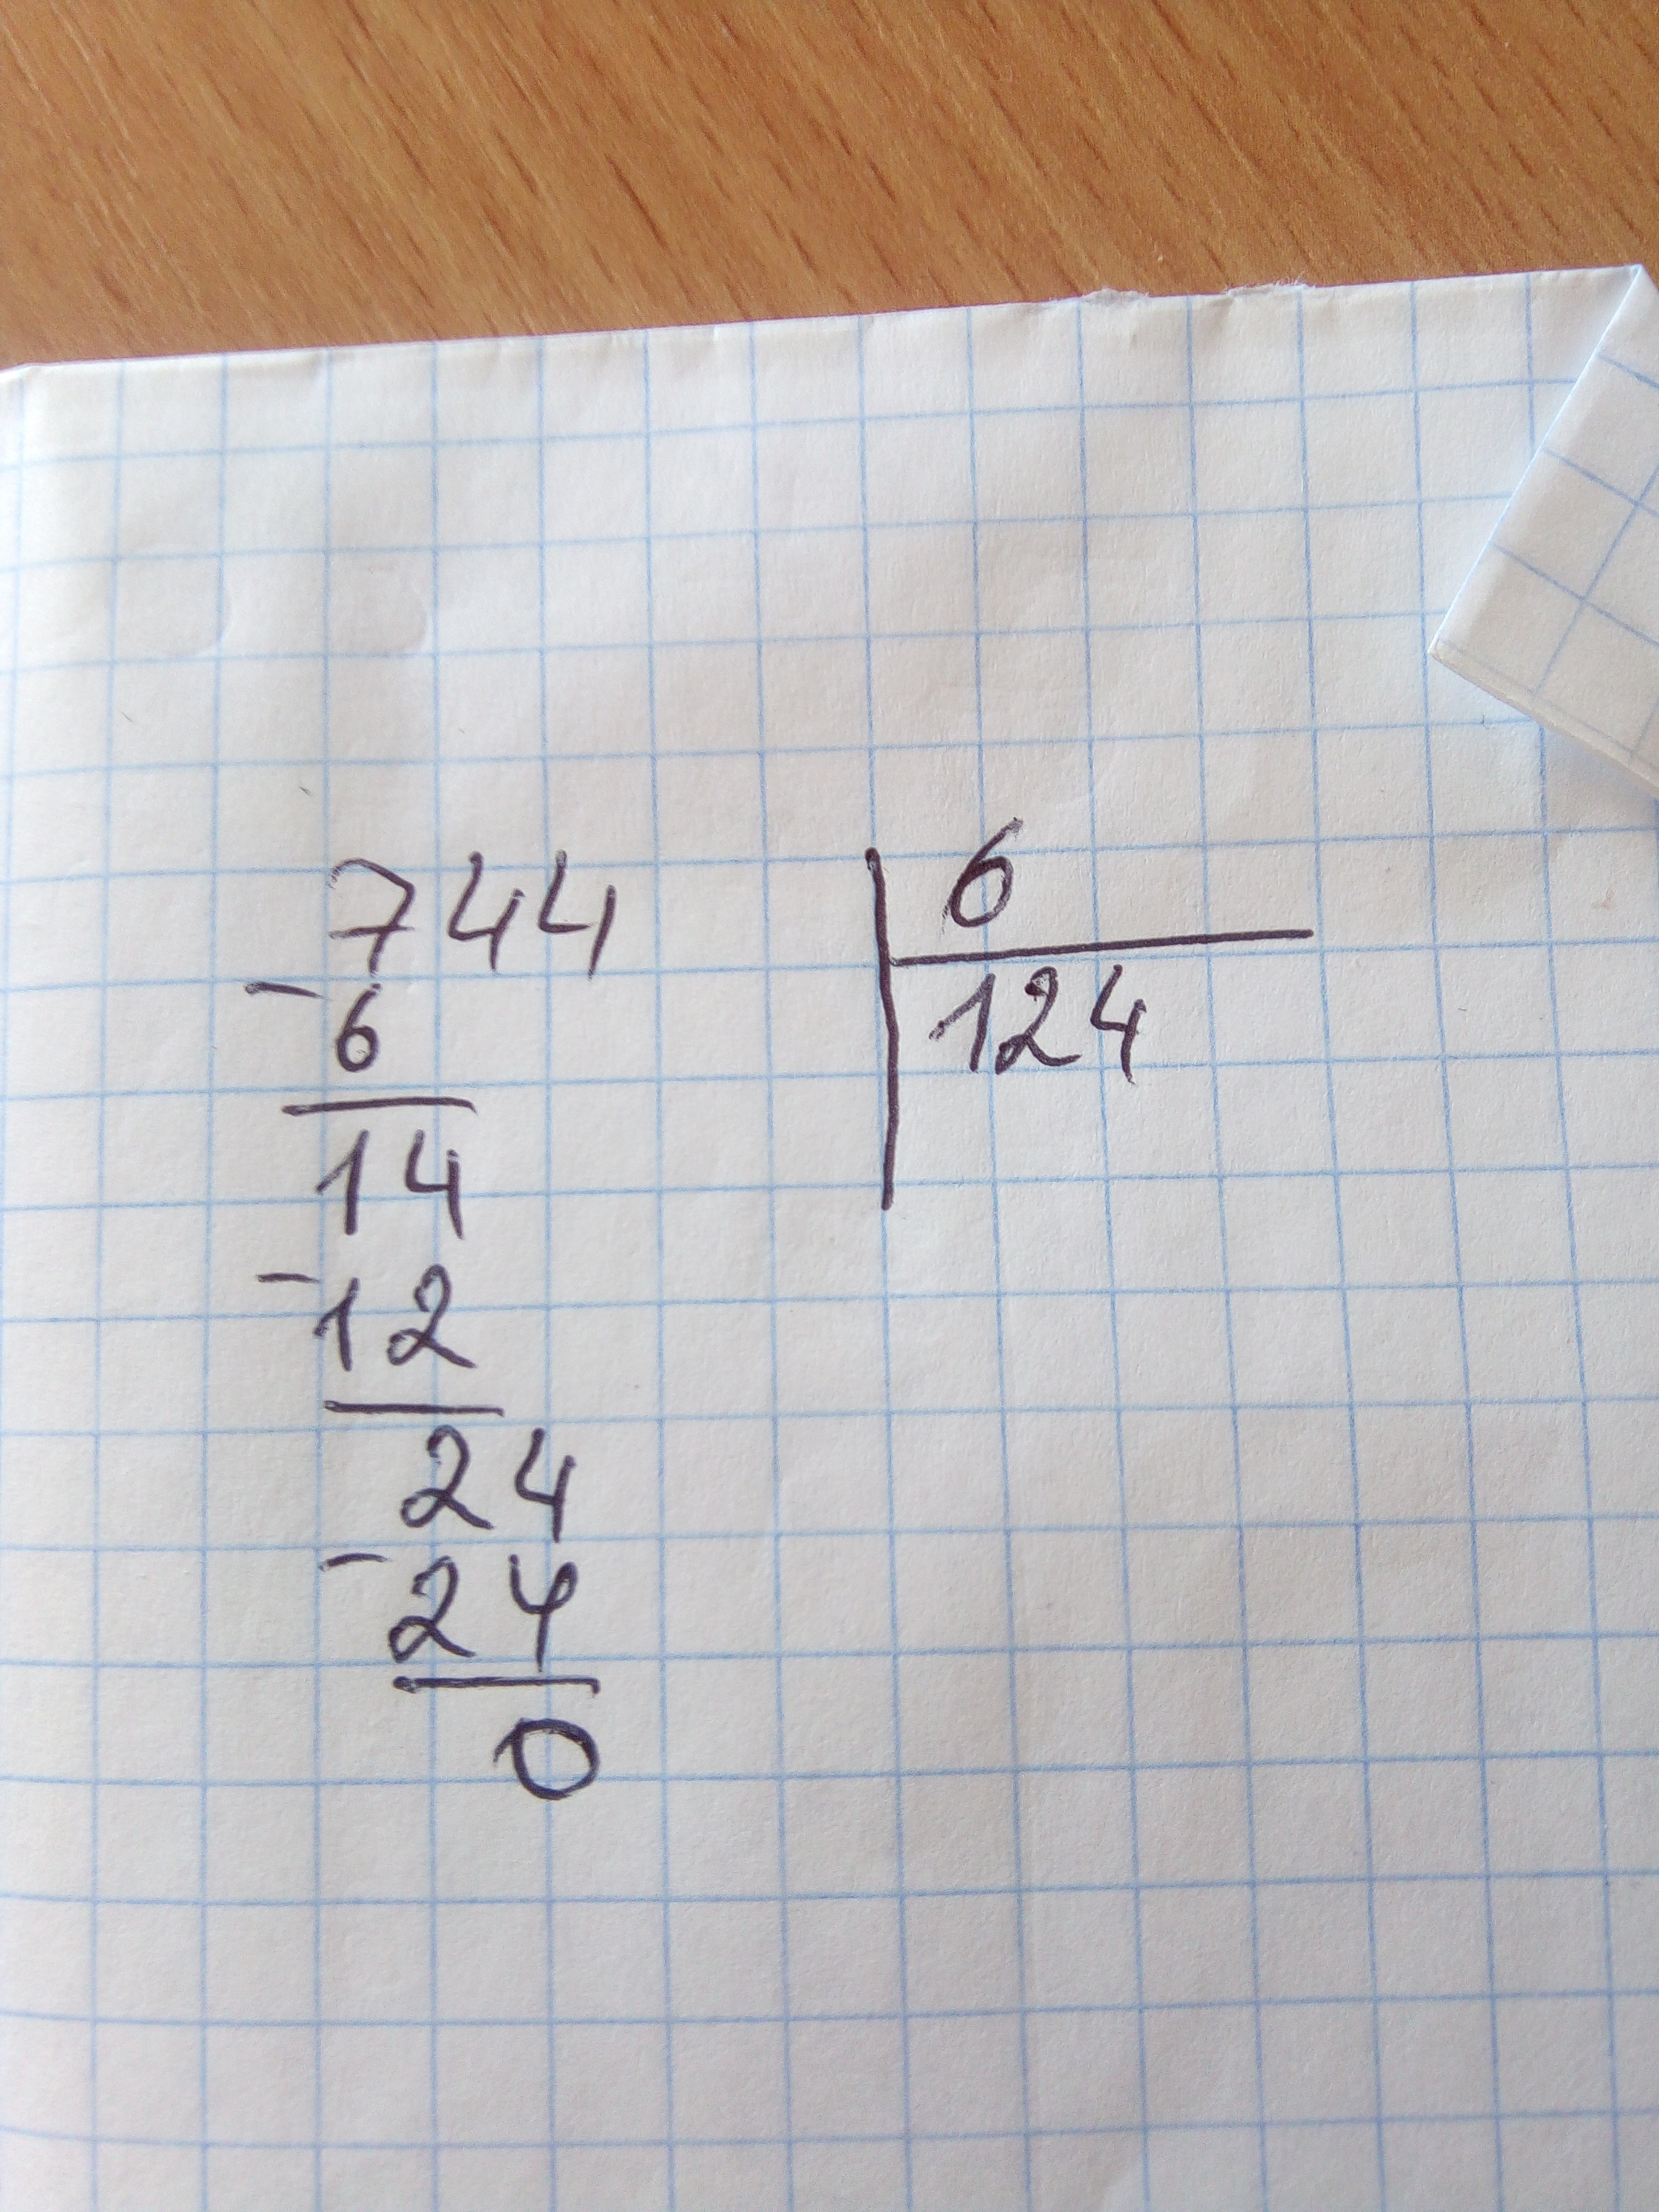 744 6
-6 124
14
-12
24
-24
0